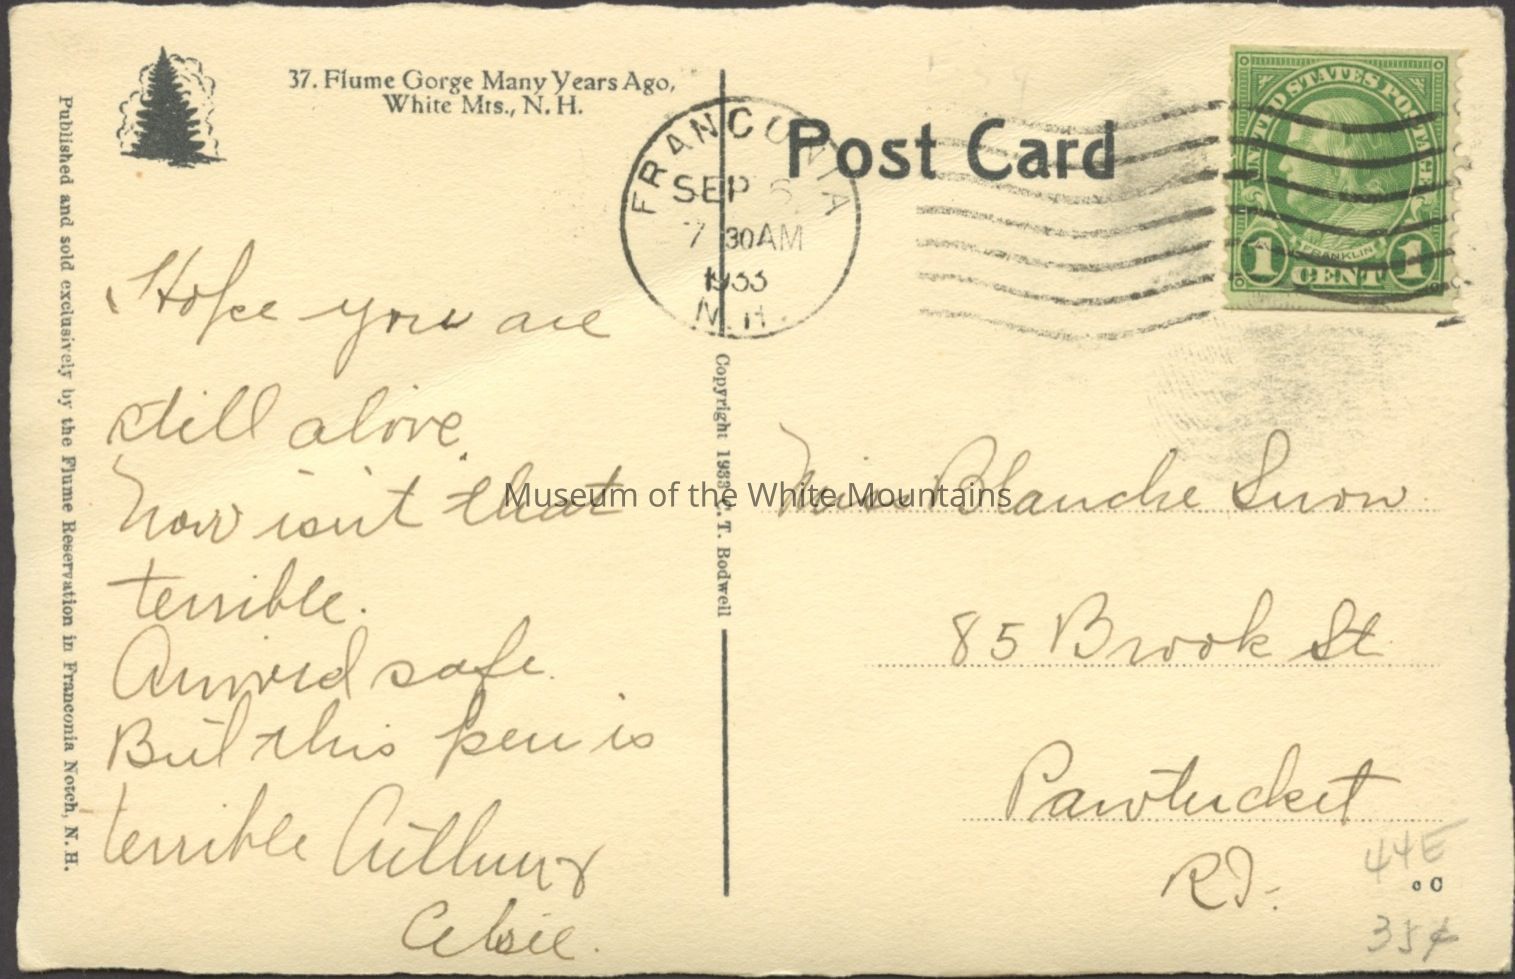 37. Flume Gorge Many Years Ago,
White Mts., N. H.
Published and sold exclusively by the Flume Reservation in Franconia Notch, N. H.
Hope you are
still alive.
Now isn't that
terrible.
Arrived safe.
But this pen is
terrible Arthur &
Elsie.
FRANCONIA
SEP 6
7 30AM
1933
N.H.
Copyright 1933 C. T. Bodwell
Post Card
UNITED STATES POSTAGE
FRANKLIN
1 CENT 1
Miss Blanche Snow
85 Brook St
Pawtucket
R.I.
44E
35¢
Museum of the White Mountains